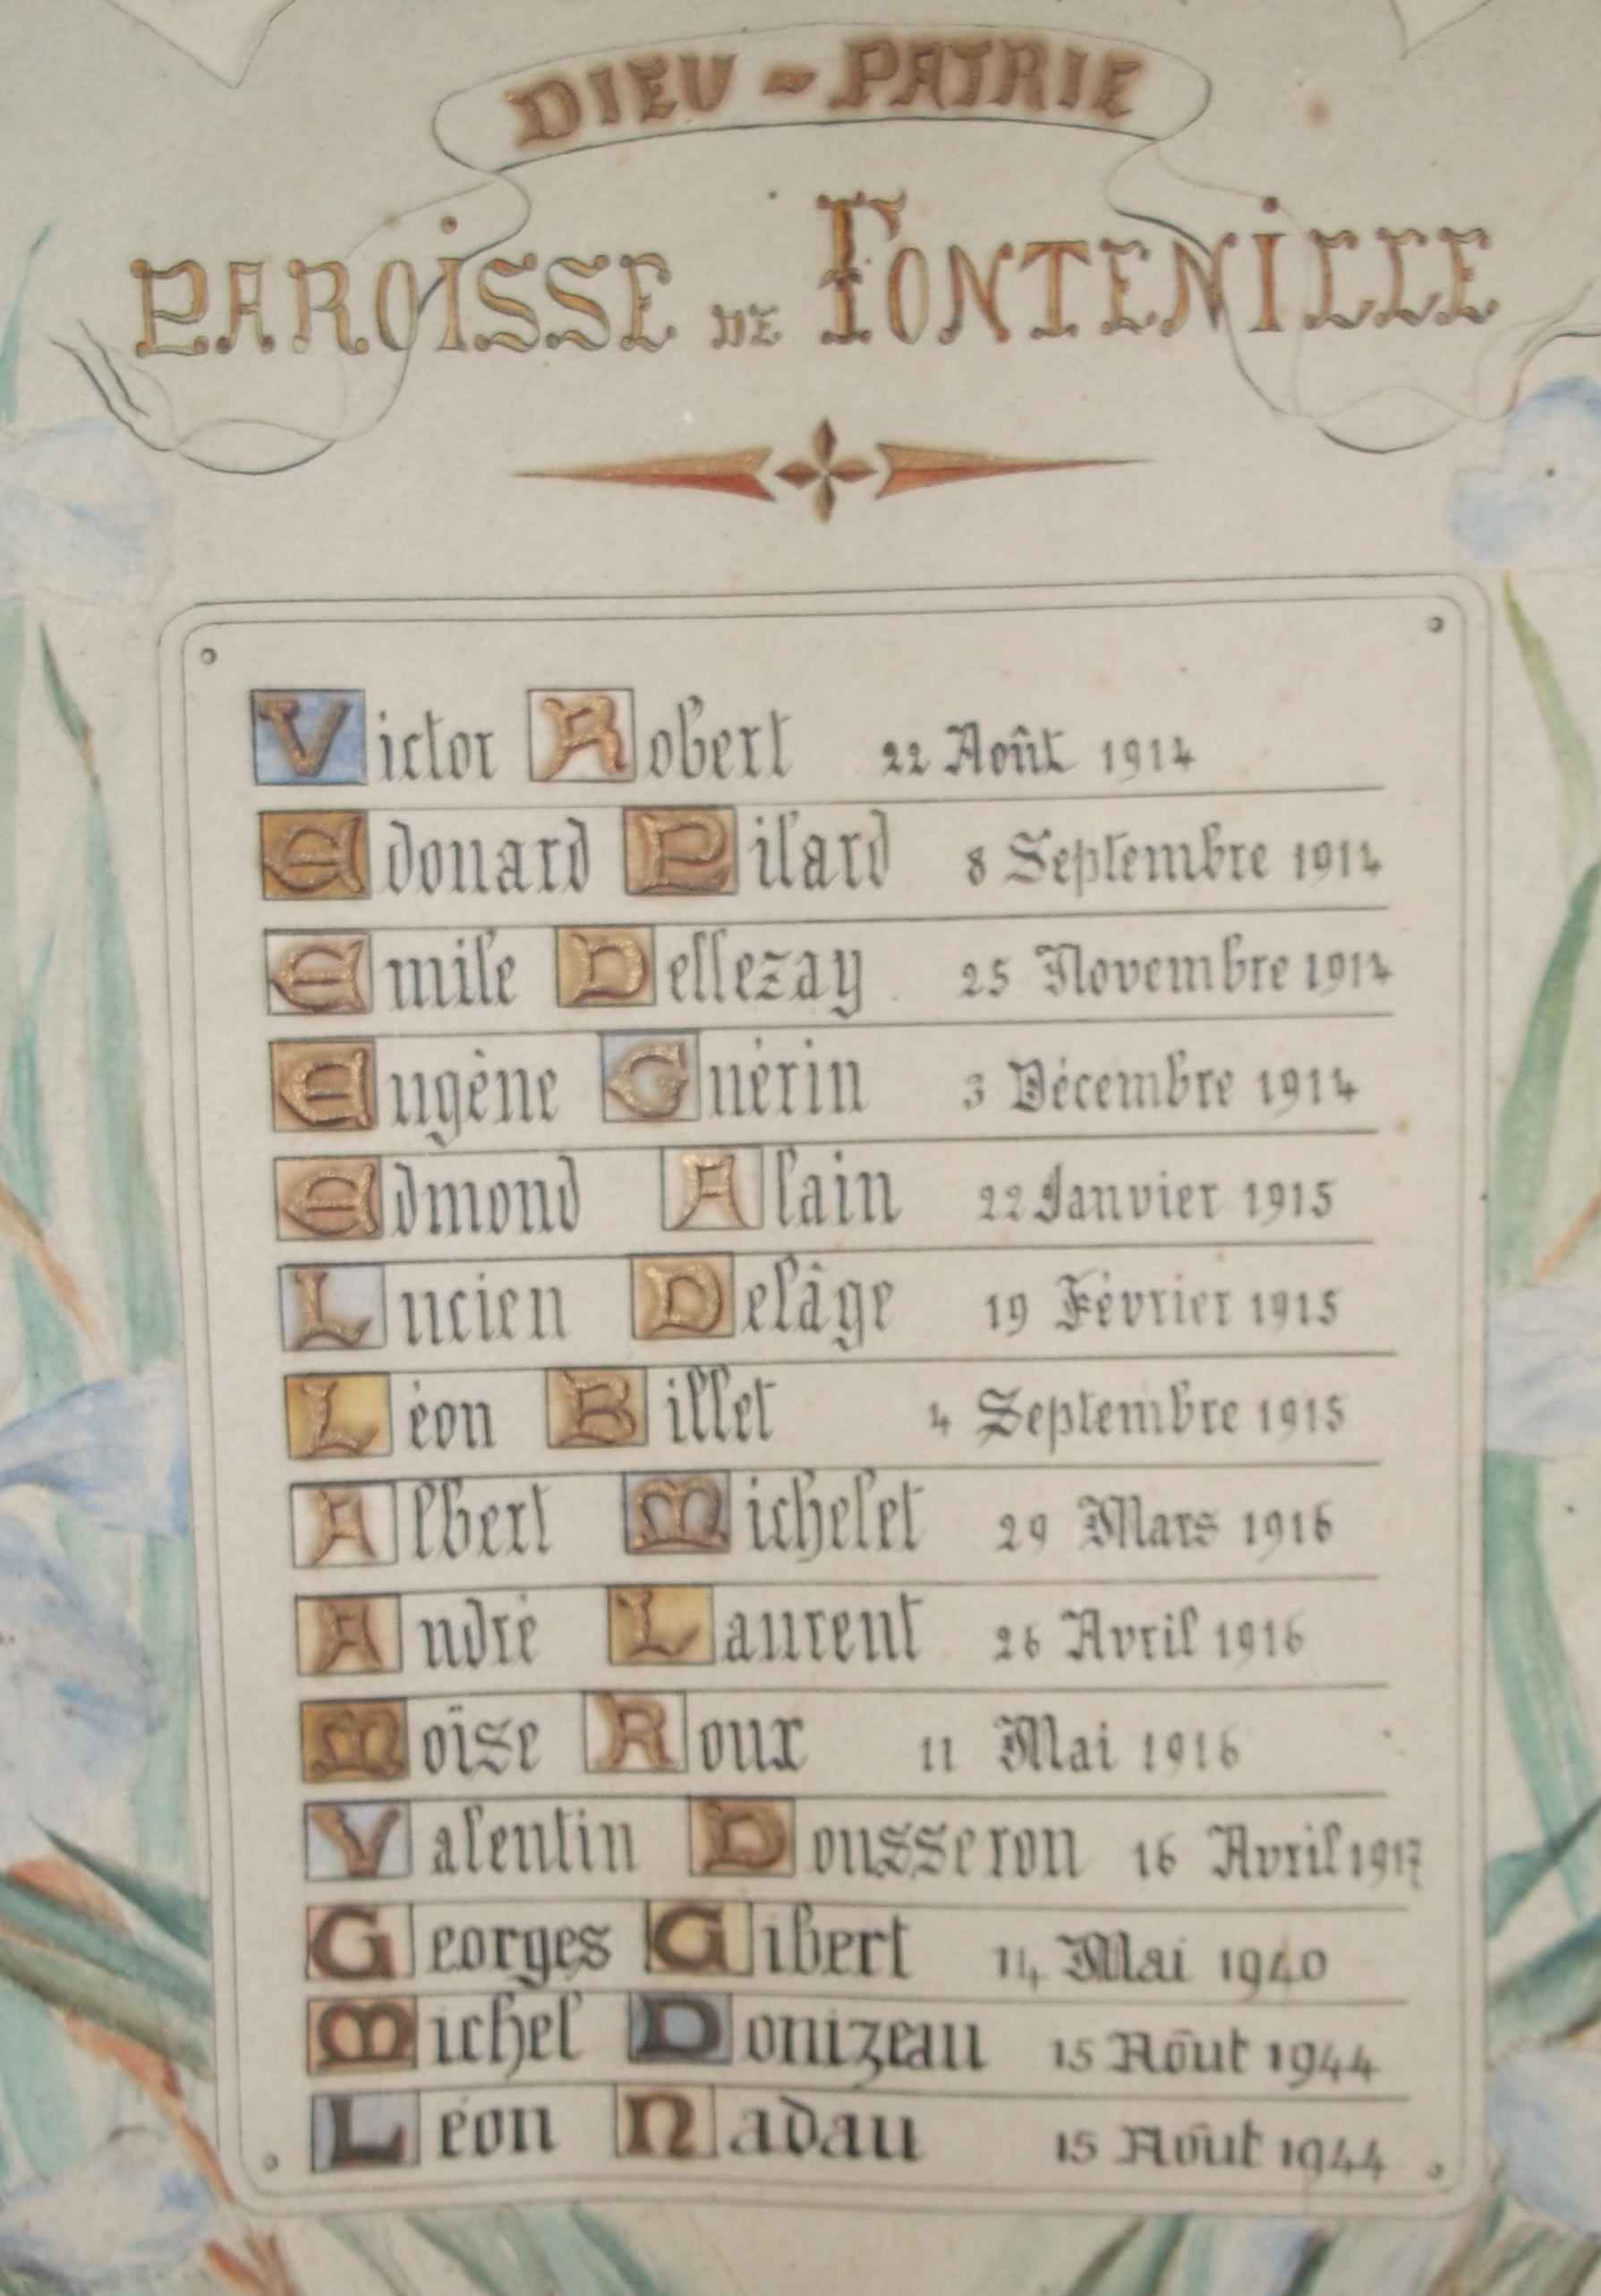 DIEU - PATRIE
PAROISSE DE FONTENILLE
Victor Robert 22 Août 1914
Edouard Pilard 8 Septembre 1914
Emile Dellezay 25 Novembre 1914
Eugène Guérin 3 Décembre 1914
Edmond Alain 22 Janvier 1915
Lucien Delâge 19 Février 1915
Léon Billet 4 Septembre 1915
Albert Michelet 29 Mars 1916
André Laurent 26 Avril 1916
Moïse Roux 11 Mai 1916
Valentin Dousseron 16 Avril 1917
Georges Gibert 14 Mai 1940
Michel Donizeau 15 Aôut 1944
Léon Nadau 15 Aôut 1944